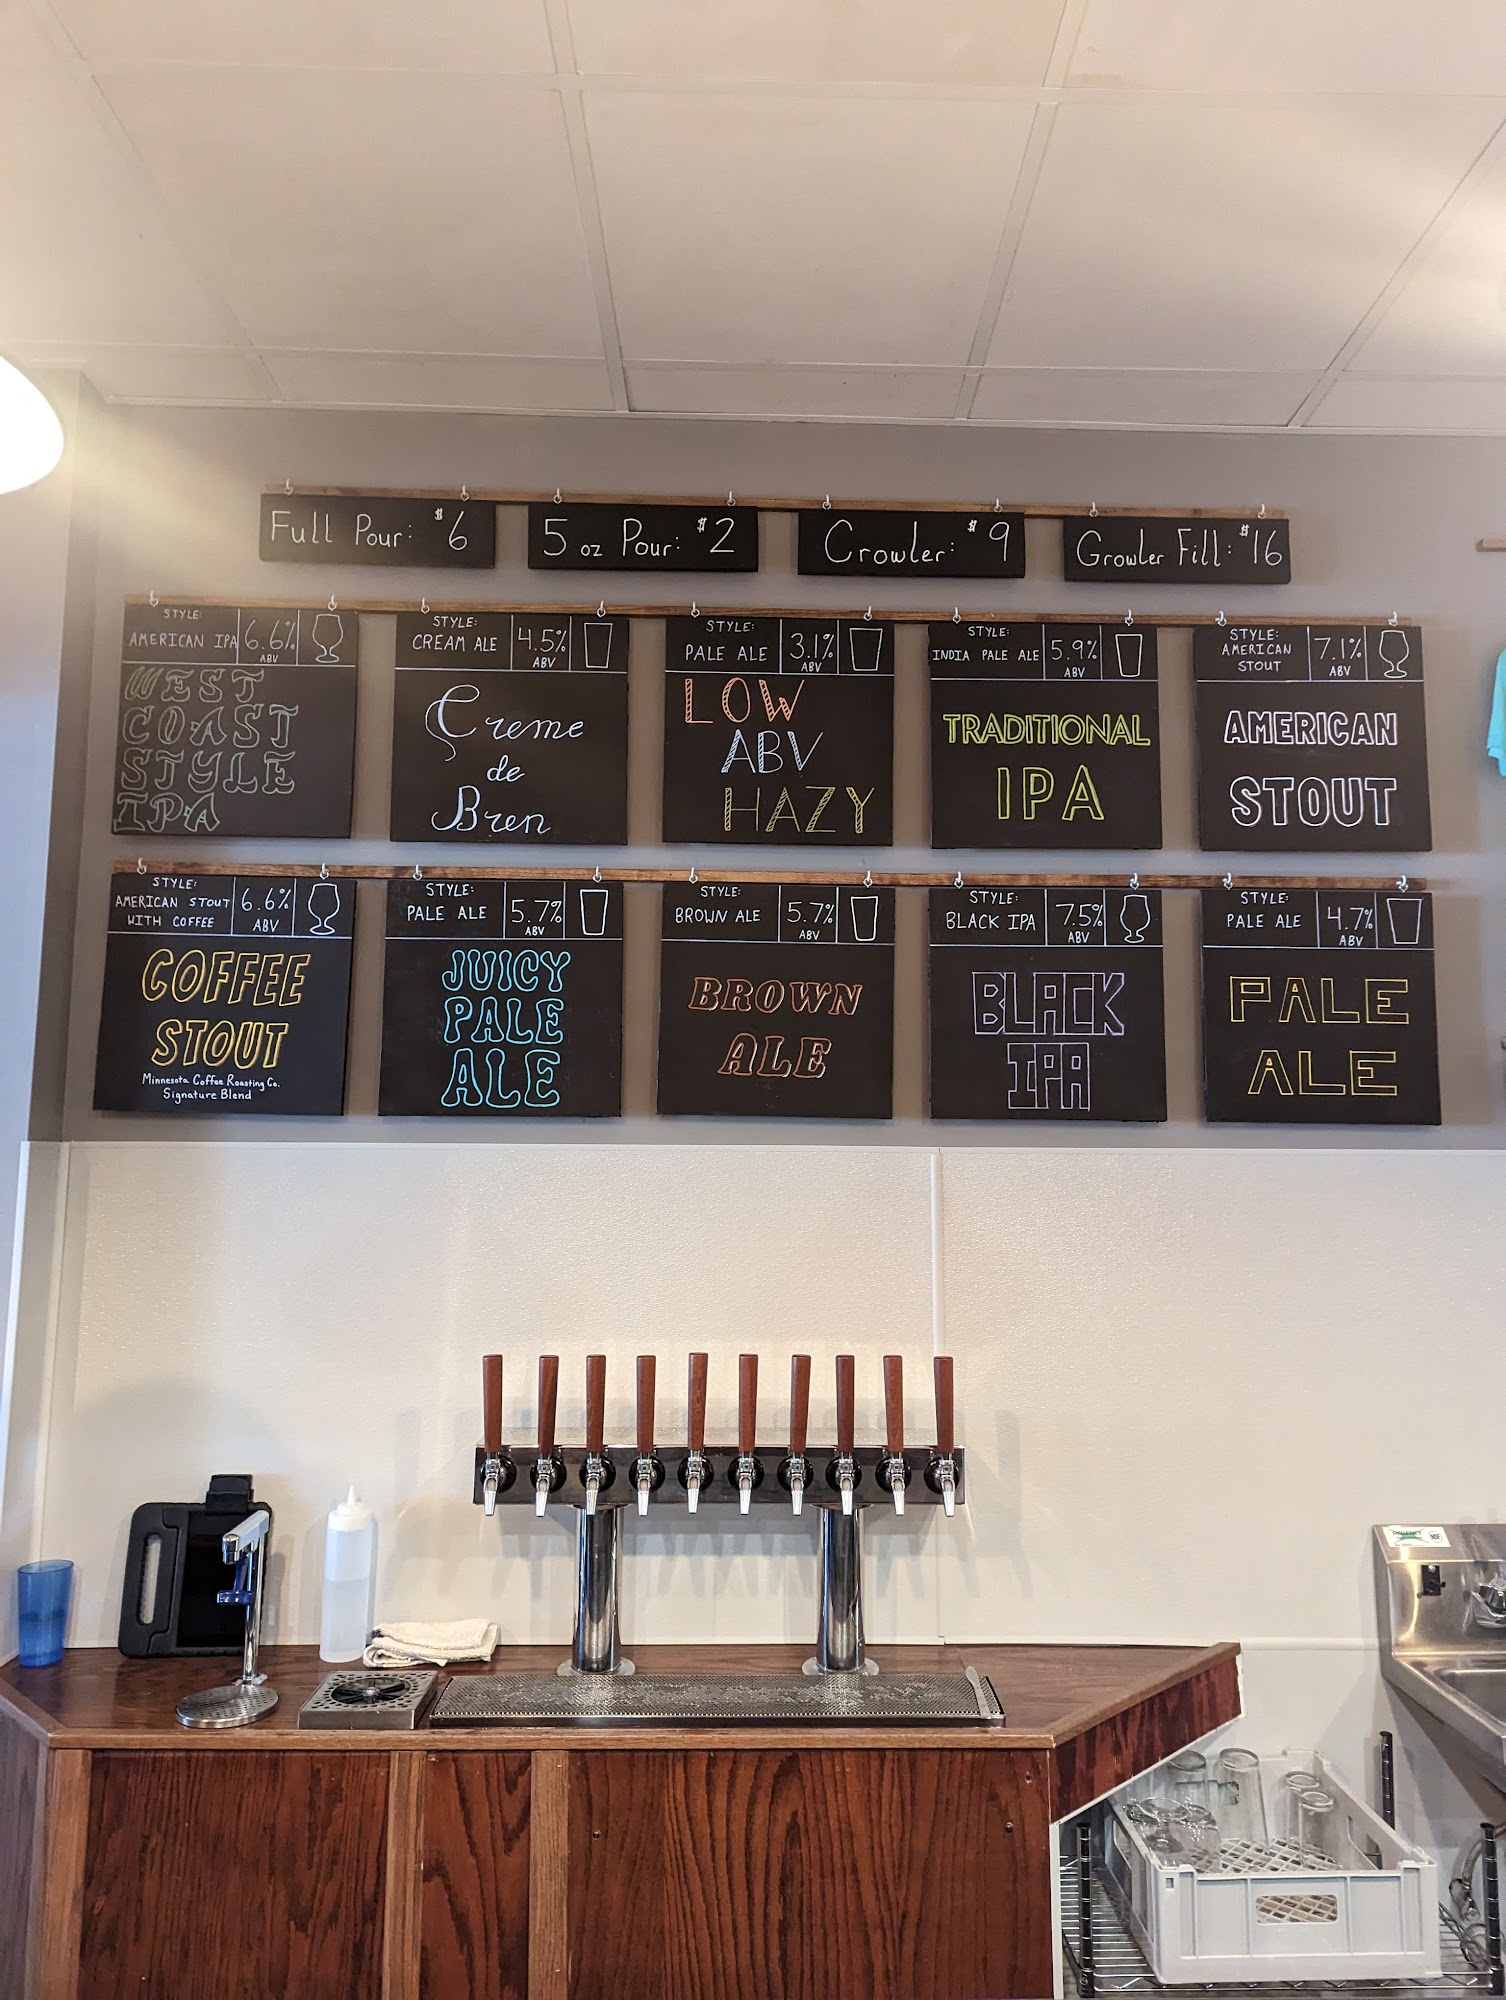 Full Pour: $6
5 oz Pour: $2
Crowler: $9
Growler Fill: $16
STYLE:
AMERICAN IPA
6.6%
ABV
WEST
COAST
STYLE
IPA
STYLE:
CREAM ALE
4.5%
ABV
Creme
de
Bren
STYLE:
PALE ALE
3.1%
ABV
LOW
ABV
HAZY
STYLE:
INDIA PALE ALE
5.9%
ABV
TRADITIONAL
IPA
STYLE:
AMERICAN
STOUT
7.1%
ABV
AMERICAN
STOUT
STYLE:
AMERICAN STOUT
WITH COFFEE
6.6%
ABV
COFFEE
STOUT
Minnesota Coffee Roasting Co.
Signature Blend
STYLE:
PALE ALE
5.7%
ABV
JUICY
PALE
ALE
STYLE:
BROWN ALE
5.7%
ABV
BROWN
ALE
STYLE:
BLACK IPA
7.5%
ABV
BLACK
IPA
STYLE:
PALE ALE
4.7%
ABV
PALE
ALE
NSF